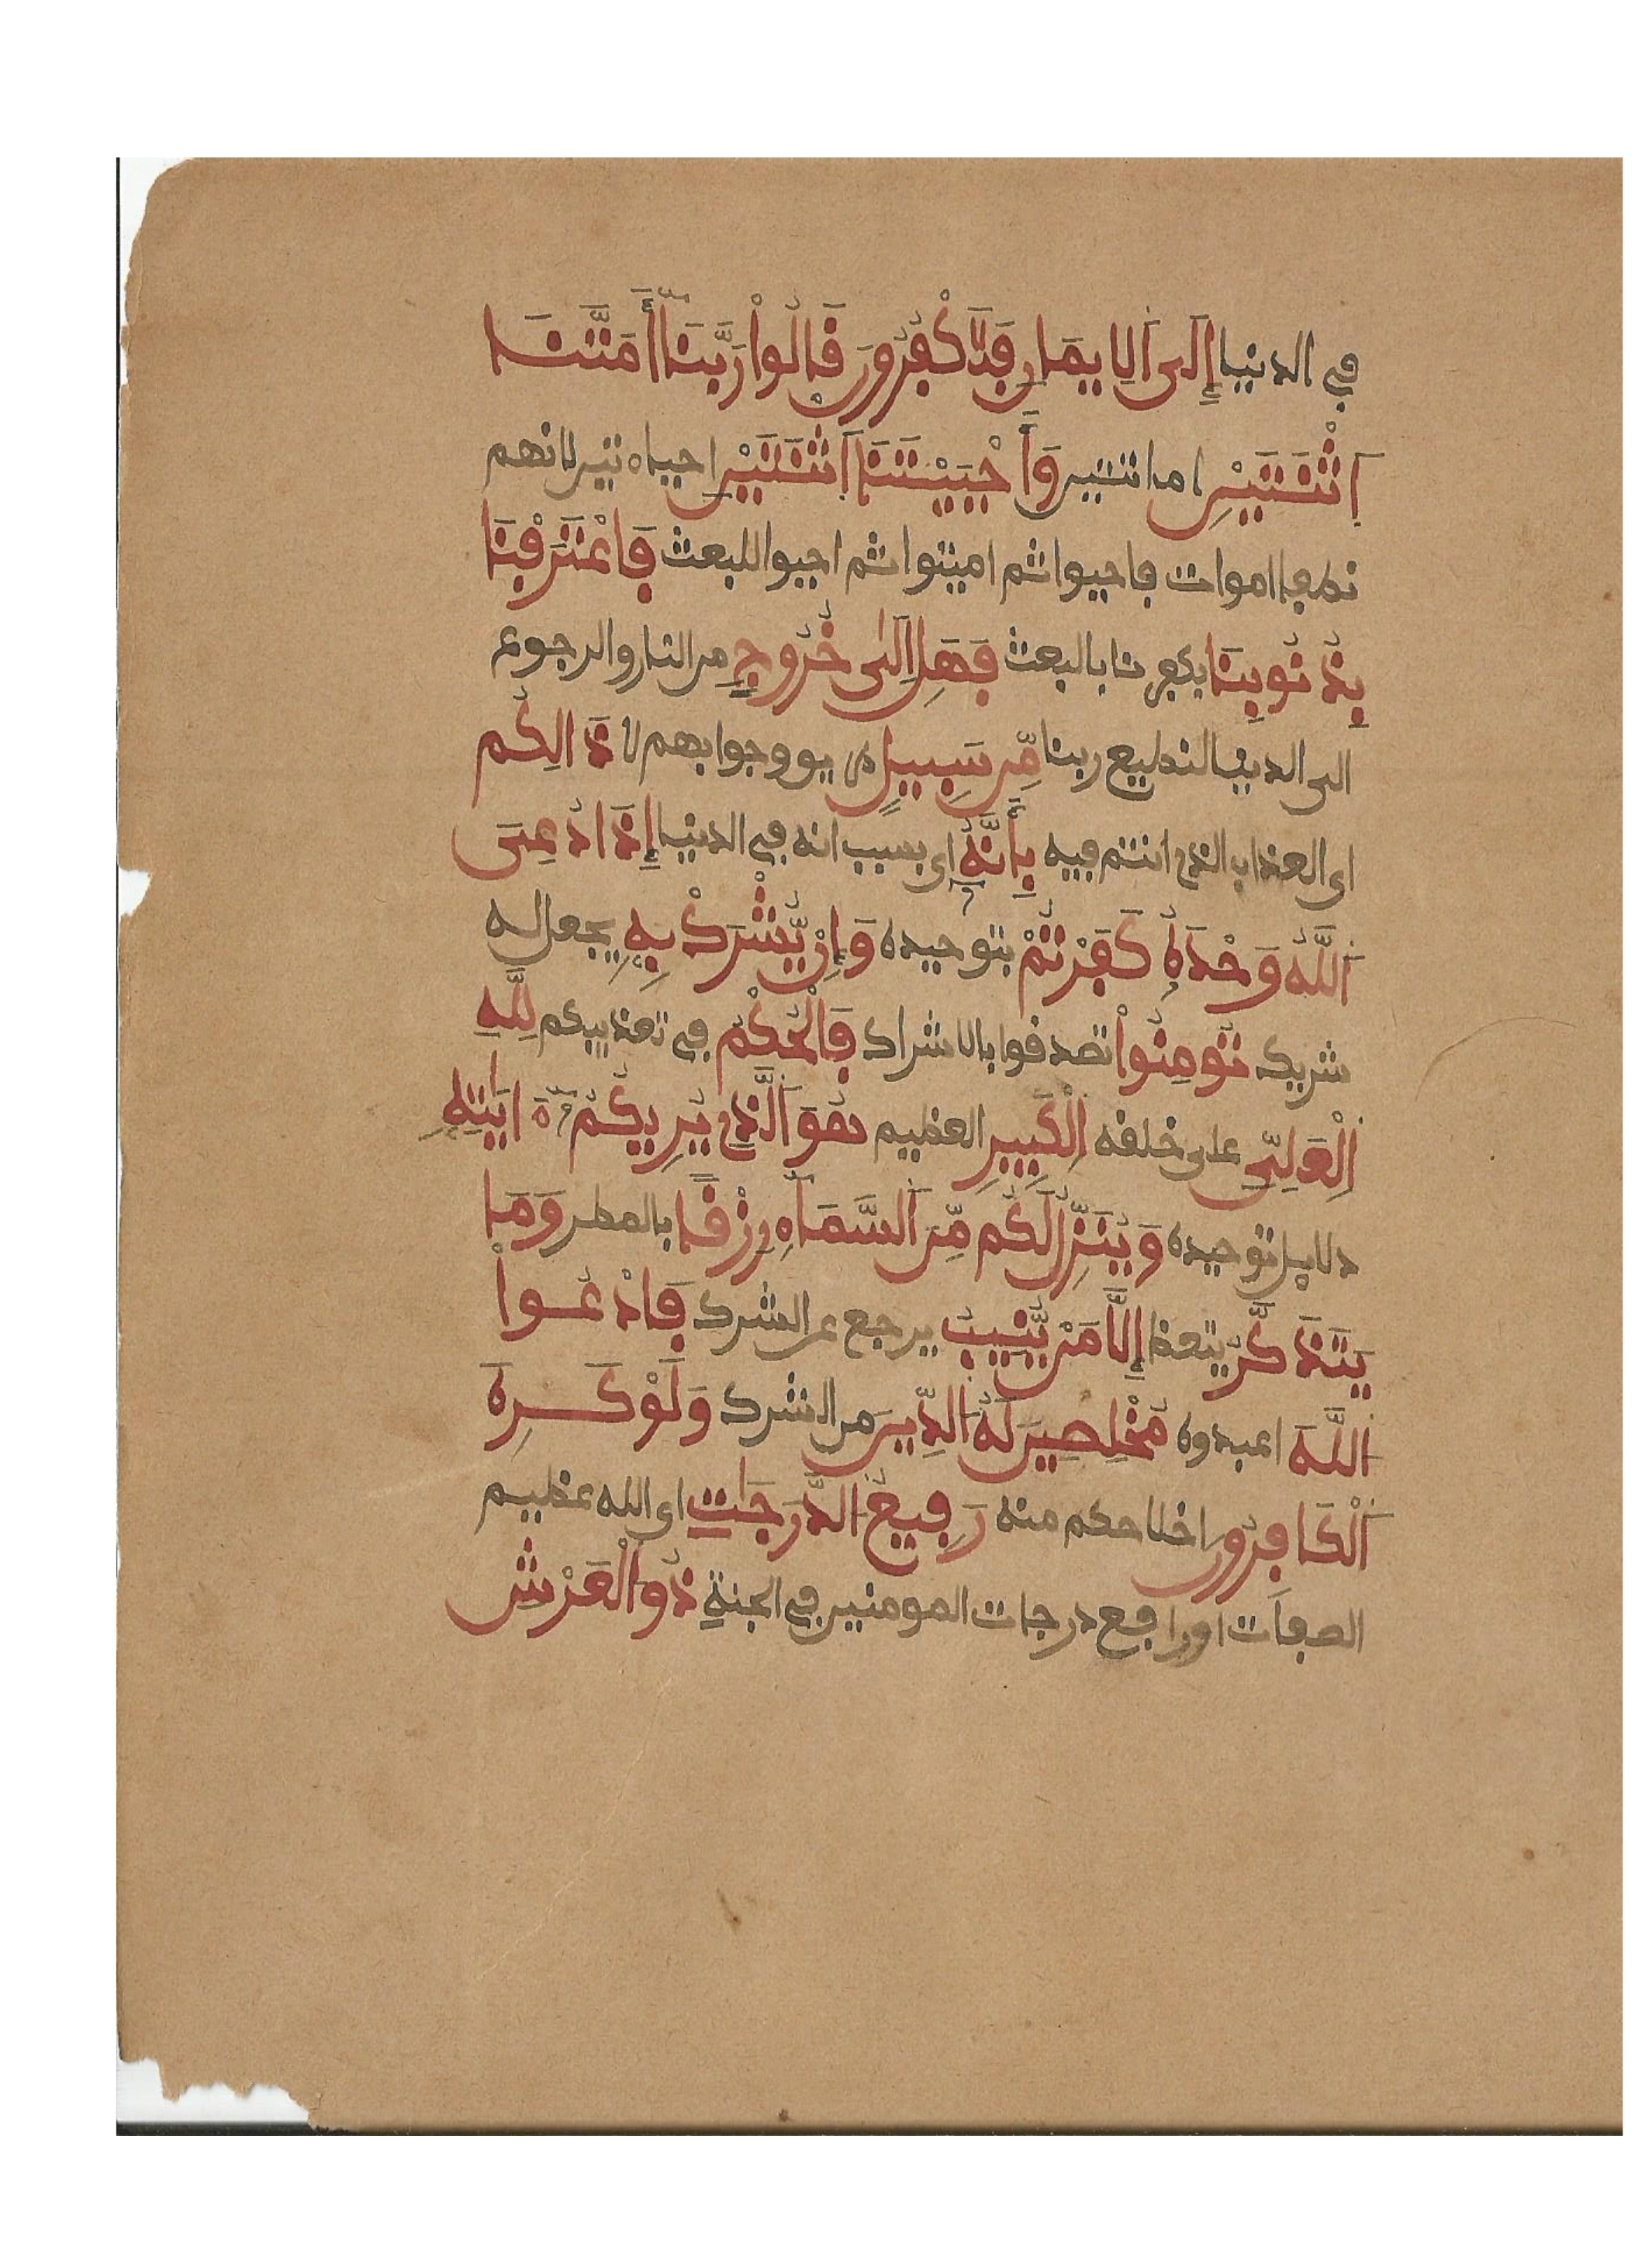 في الدنيا إِلَى اَلِايمَانِ فَتَكْفُرُونَ قَالُواْ رَبَّنَا أَمَتَّنَا
اَثْنَتَيْنِ اماتتين وَأَحْيَيْتَنَا اَثْنَتَيْنِ احياءتين لانهم
نطفا اموات فاحيوا ثم اميتوا ثم احيوا للبعث فَاعْتَرَفْنَا
بِذُنُوبِنَا بكفرنا بالبعث فَهَلِ اِلَى خُرُوجٍ من النار والرجوع
الى الدنيا لنطيع ربنا مِّن سَبِيلٍ وجوابهم لا ذَالِكُم
اى العذاب الذى انتم فيه بِأَنَّهُ اى بسبب انه في الدنيا إِذَا دُعِىَ
اَللَّهُ وَحْدَهُ كَفَرْتُمْ بتوحيده وَإِنْ يُّشْرَكْ بِهِ يجعل له
شريك تُومِنُواْ تصدقوا بالاشراك فَالْحُكْمُ في تعذيبكم لِلَّهِ
اِلْعَلِىِّ على خلقه اِلْكَبِيرِ العظيم هُوَ اَلَّذِى يُرِيكُمُ ءَايَٰتِهِ
دلايل توحيده وَيُنَزِّلُ لَكُم مِّنَ اَلسَّمَآءِ رِزْقًا بالمطر وَمَا
يَتَذَكَّرُ يتعظ إِلَّا مَنْ يُّنِيبُ يرجع عن الشرك فَادْعُواْ
اللَّهَ اعبدوه مُخْلِصِينَ لَهُ الدِّينَ من الشرك وَلَوْ كَرِهَ
اَلْكَافِرُونَ اخلاصكم منه رَفِيعُ الدَّرَجَٰتِ اى الله عظيم
الصفات او رافع درجات المومنين في الجنة ذُو الْعَرْشِ